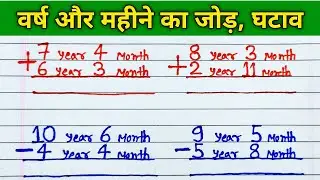 वर्ष और महीने का जोड़, घटाव
7 year 4 month
+ 6 year 3 month
8 year 3 month
+ 2 year 11 month
10 year 6 month
- 4 year 4 month
9 year 5 month
- 5 year 8 month